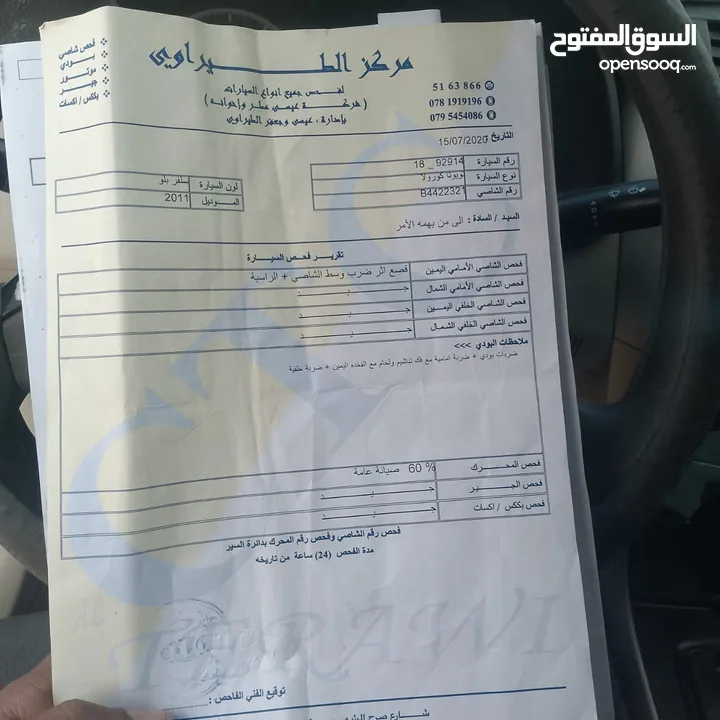 السوق المفتوح
opensooq.com
مركز الطيراوي
فحص شاصي
بودي
موتور
جير
بككس / اكسات
لفحص جميع انواع السيارات
( شركة عيسى مطر واخوانه )
بإدارة ، عيسى وجعفر الطيراوي
51 63 866
078 1919196
079 5454086
التاريخ : 15/07/2020
رقم السيارة 92914 _ 18
نوع السيارة تويوتا كورولا
رقم الشاصي B4422321
لون السيارة سلفر بلو
الموديل 2011
السيد / السادة : الى من يهمه الأمر
تقرير فحص السيارة
فحص الشاصي الأمامي اليمين قصع اثر ضرب وسط الشاصي + الراسية
فحص الشاصي الأمامي الشمال جـــيـــد
فحص الشاصي الخلفي اليمين جـــيـــد
فحص الشاصي الخلفي الشمال جـــيـــد
ملاحظات البودي >>>
ضربات بودي + ضربة امامية مع فك تناشيم ولحام مع الفخده اليمين + ضربة خلفية
فحص المحـــرك 60 % صيانة عامة
فحص الجـــير جـــيـــد
فحص بككس / اكسات جـــيـــد
فحص رقم الشاصي وفحص رقم المحرك بدائرة السير
مدة الفحص (24) ساعة من تاريخه
TERAWI
توقيع الفني الفاحص :
شارع صرح